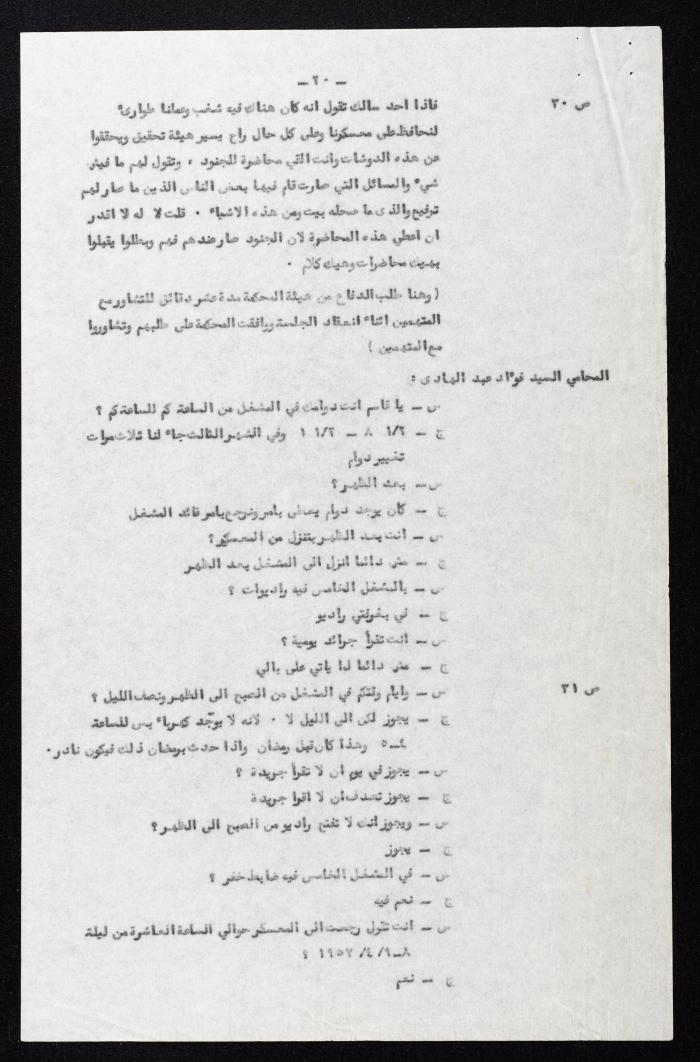 ـ ٢٠ ـ
ص ٣٠
فاذا احد سالك تقول انه كان هناك فيه شغب وعملنا طوارئ
لنحافظ على معسكرنا وعلى كل حال راح يسير هيئة تحقيق ويحققوا
عن هذه الدوشات وانت القي محاضرة للجنود ، وتقول لهم ما فيش
شيء والمسائل التي صارت قام فيها بعض الناس الذين ما صار لهم
ترفيع والذى ما صحله بيت ومن هذه الاشياء ٠ قلت لا له لا اقدر
ان اعطي هذه المحاضرة لان الجنود صار عند هم فهم وبطلوا يقبلوا
بهيك محاضرات وهيك كلام ٠
( وهنا طلب الدفاع من هيئة المحكمة مدة عشر دقائق للتشاور مع
المتهمين اثناء انعقاد الجلسة ووافقت المحكمة على طلبهم وتشاوروا
مع المتهمين )
المحامي السيد فوءاد عبد الهادى :
س ـ يا قاسم انت دوامك في المشغل من الساعة كم للساعة كم ؟
ج ـ ١/٢ ٨ ـ ١/٢ ١ وفي الشهر الثالث جاء لنا ثلاث مرات
تغيير دوام
س ـ بعد الظهر ؟
ج ـ كان يوجد دوام يعطى بامر ونرجع بامر قائد المشغل
س ـ انت بعد الظهر بتنزل من المعسكر ؟
ج ـ مش دائما انزل الى المشغل بعد الظهر
س ـ بالمشغل الخامس فيه راديوات ؟
ج ـ في بغرفتي راديو
س ـ انت تقرأ جرائد يومية ؟
ج ـ مش دائما لما ياتي على بالي
ص ٣١
س ـ وايام وقتكم في المشغل من الصبح الى الظهر ونصف الليل ؟
ج ـ يجوز لكن الى الليل لا ٠ لانه لا يوجد كهرباء بس للساعة
٤ـ ٥ وهذا كان قبل رمضان واذا حدث برمضان ذلك فيكون نادر ٠
س ـ يجوز في يوم ان لا تقرأ جريدة ؟
ج ـ يجوز تصدف ان لا اقرا جريدة
س ـ ويجوز انك لا تفتح راديو من الصبح الى الظهر ؟
ج ـ يجوز
س ـ في المشغل الخامس فيه ضابط خفر ؟
ج ـ نعم فيه
س ـ انت تقول رجعت الى المعسكر حوالي الساعة العاشرة من ليلة
٨ـ ٩/ ٤/ ١٩٥٧ ؟
ج ـ نعم